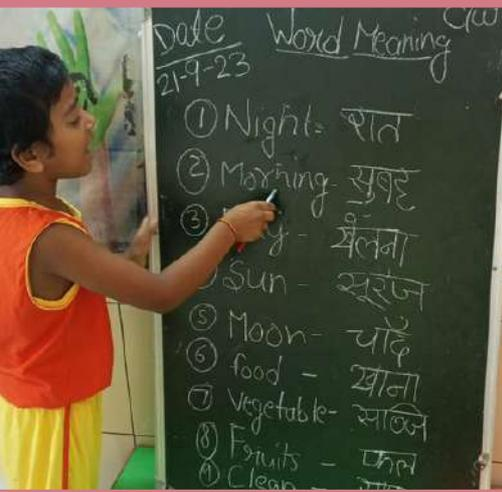 Date Word Meaning CW
21-9-23
① Night= रात
② Morning- सुबह
③ - खेलना
Sun - सूरज
⑤ Moon- चाँद
⑥ food - खाना
⑦ Vegetable- सब्जि
⑧ Fruits - फल
⑨ Clean -